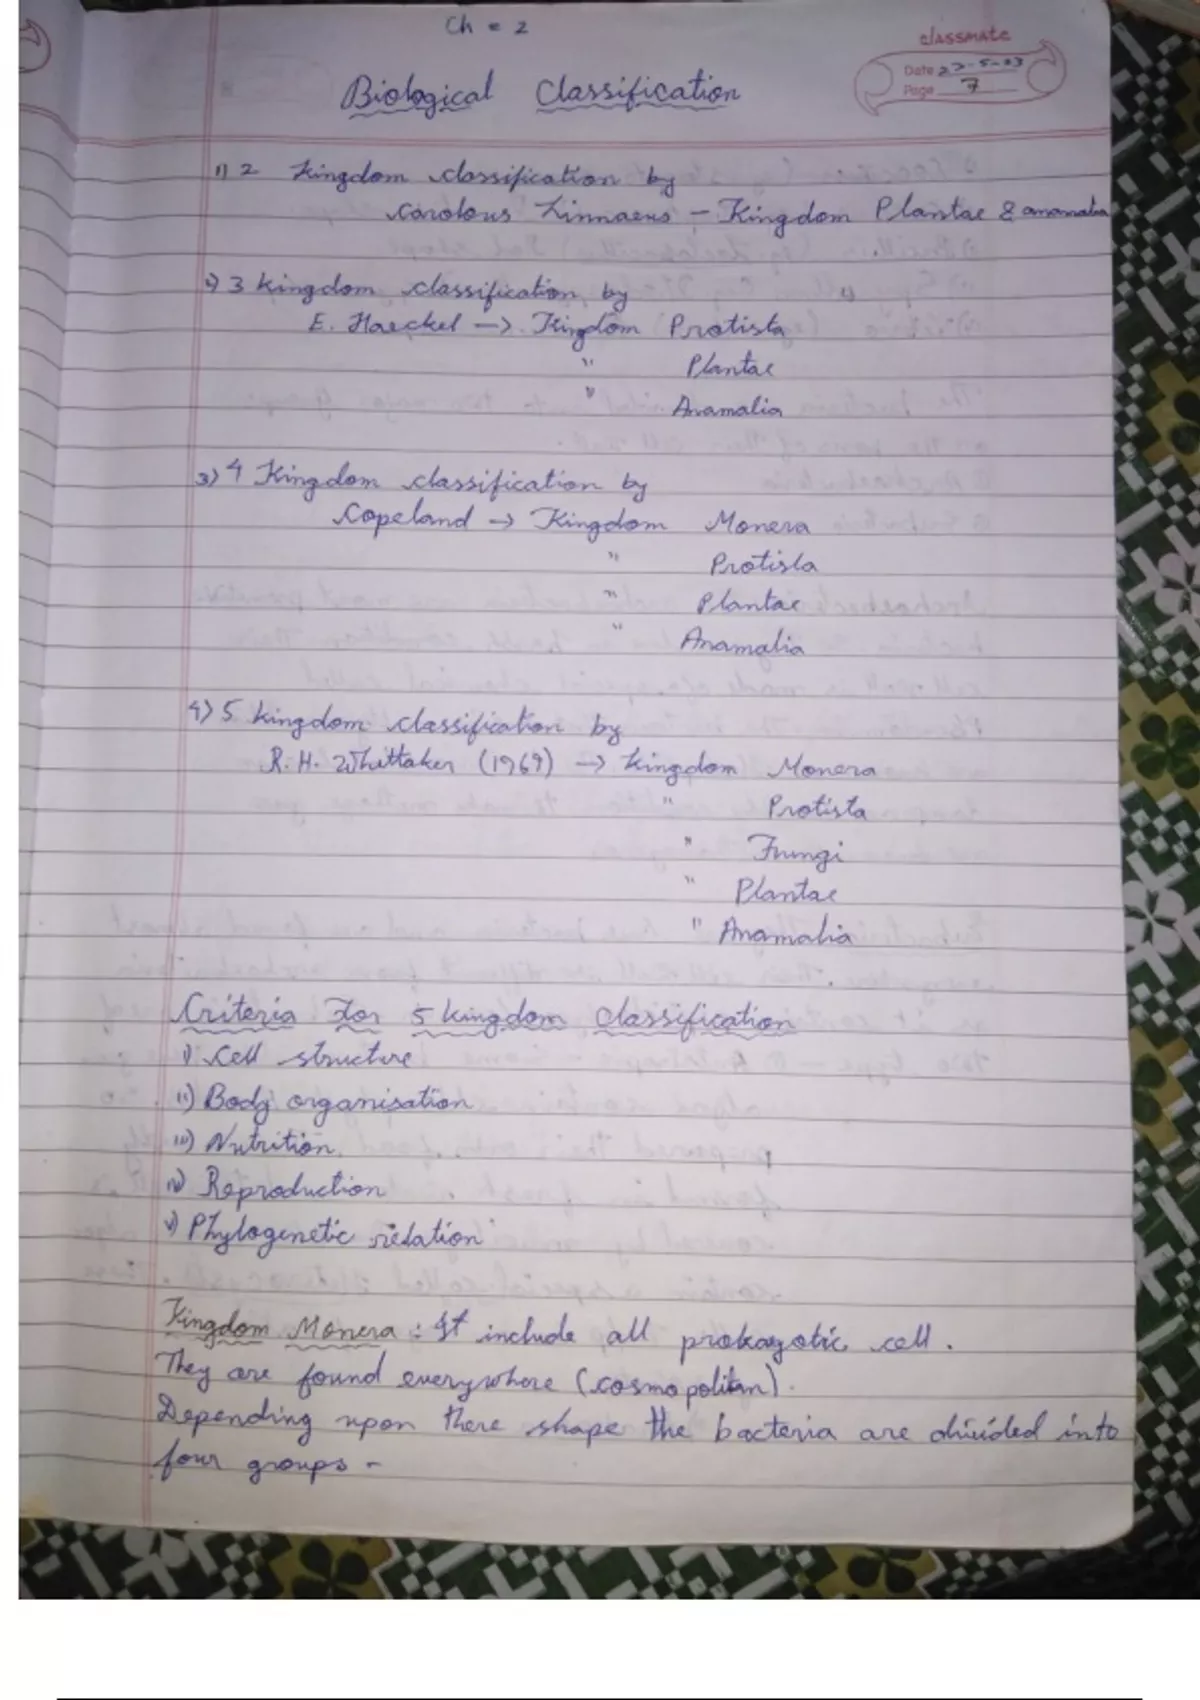 Ch = 2
classmate
Date 27-5-03
Page 7
Biological Classification
1) 2 Kingdom classification by
Carolous Linnaeus - Kingdom Plantae & anamalia
2) 3 kingdom classification by
E. Haeckel -> Kingdom Protista
" Plantae
" Anamalia
3) 4 Kingdom classification by
Copeland -> Kingdom Monera
" Protista
" Plantae
" Anamalia
4) 5 kingdom classification by
R.H. Whittaker (1969) -> kingdom Monera
" Protista
" Fungi
" Plantae
" Anamalia
Criteria for 5 kingdom classification
i) Cell structure
ii) Body organisation
iii) Nutrition
iv) Reproduction
v) Phylogenetic relation
Kingdom Monera : It include all prokayotic cell.
They are found everywhere (cosmopolitan).
Depending upon there shape the bacteria are divided into
four groups -